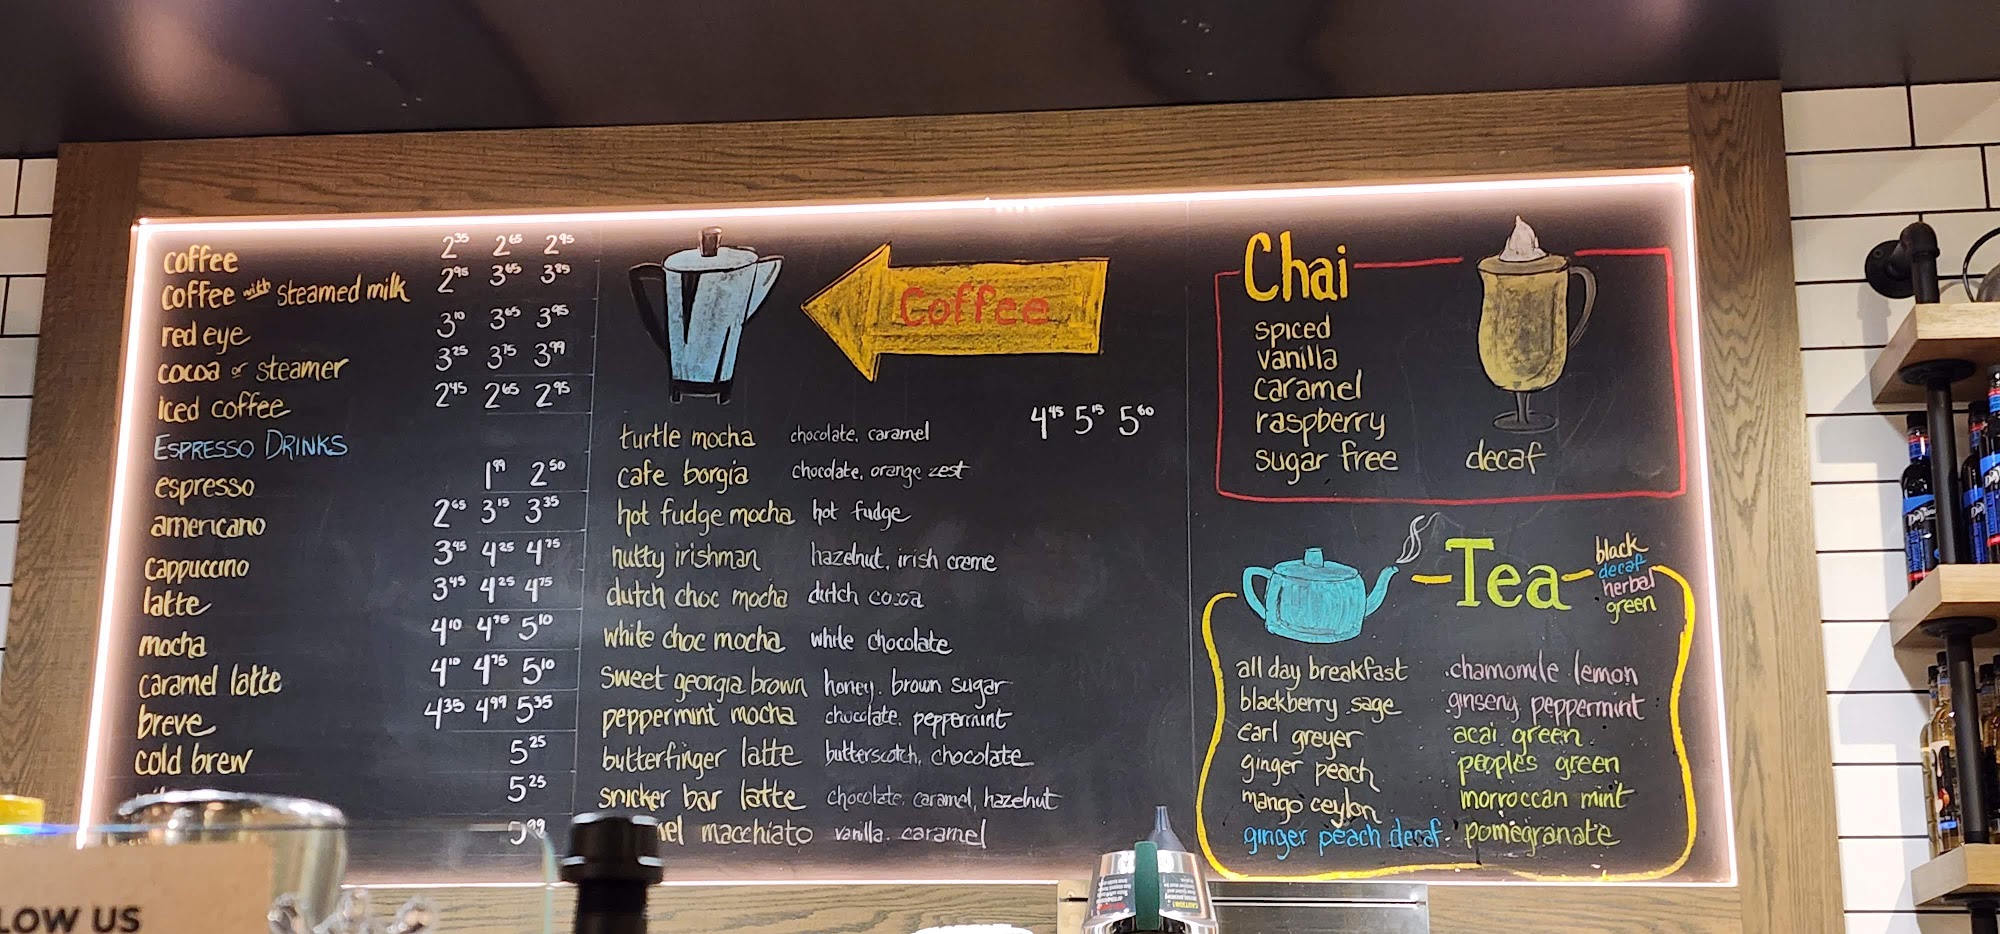 coffee 2.35 2.65 2.95
coffee with steamed milk 2.95 3.65 3.85
red eye 3.10 3.65 3.95
cocoa or steamer 3.25 3.75 3.99
iced coffee 2.45 2.65 2.95
ESPRESSO DRINKS
espresso 1.99 2.50
americano 2.65 3.15 3.35
cappuccino 3.45 4.25 4.75
latte 3.45 4.25 4.75
mocha 4.10 4.75 5.10
caramel latte 4.10 4.75 5.10
breve 4.35 4.99 5.35
cold brew 5.25
5.25
5.99
Coffee
4.45 5.15 5.60
turtle mocha chocolate, caramel
cafe borgia chocolate, orange zest
hot fudge mocha hot fudge
nutty irishman hazelnut, irish creme
dutch choc mocha dutch cocoa
white choc mocha white chocolate
sweet georgia brown honey, brown sugar
peppermint mocha chocolate, peppermint
butterfinger latte butterscotch, chocolate
snicker bar latte chocolate, caramel, hazelnut
macchiato vanilla, caramel
Chai
spiced
vanilla
caramel
raspberry
sugar free
decaf
Tea
black
decaf
herbal
green
all day breakfast
blackberry sage
earl greyer
ginger peach
mango ceylon
ginger peach decaf
chamomile lemon
ginseng peppermint
acai green
peoples green
morroccan mint
pomegranate
LOW US
CAUTION!